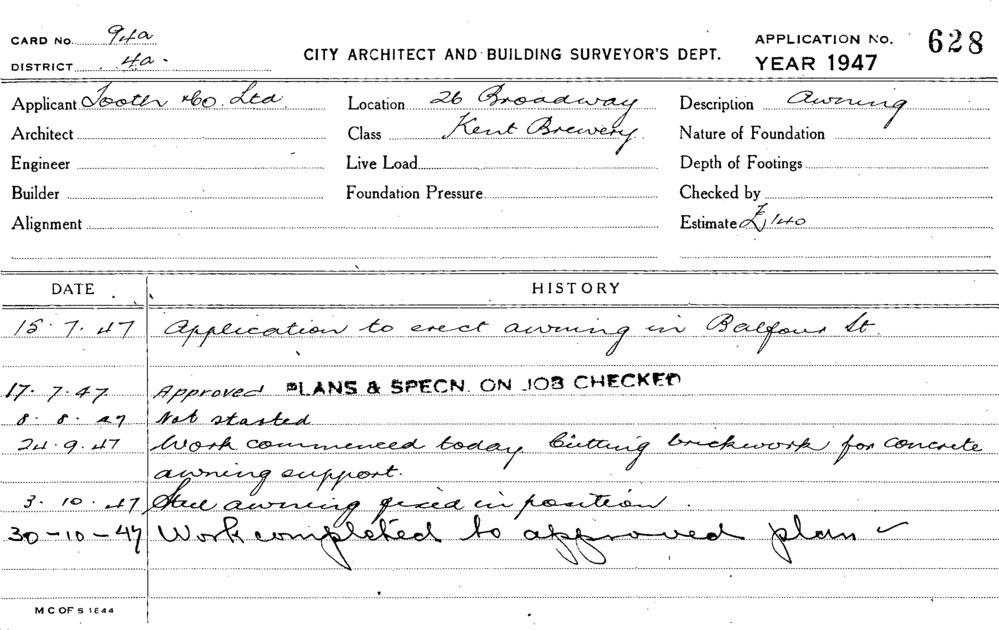 CARD No. 94a
DISTRICT 4a.
CITY ARCHITECT AND BUILDING SURVEYOR'S DEPT.
APPLICATION No. 628
YEAR 1947
Applicant Tooth & Co. Ltd Location 26 Broadway Description Awning
Architect Class Kent Brewery Nature of Foundation
Engineer Live Load Depth of Footings
Builder Foundation Pressure Checked by
Alignment Estimate £140
DATE HISTORY
15.7.47 Application to erect awning in Balfour St.
17.7.47 Approved PLANS & SPECN. ON JOB CHECKED
8.8.47 Not started
24.9.47 Work commenced today Cutting brickwork for concrete
awning support.
3.10.47 Steel awning fixed in position.
30-10-47 Work completed to approved plan
M C OF S 1844